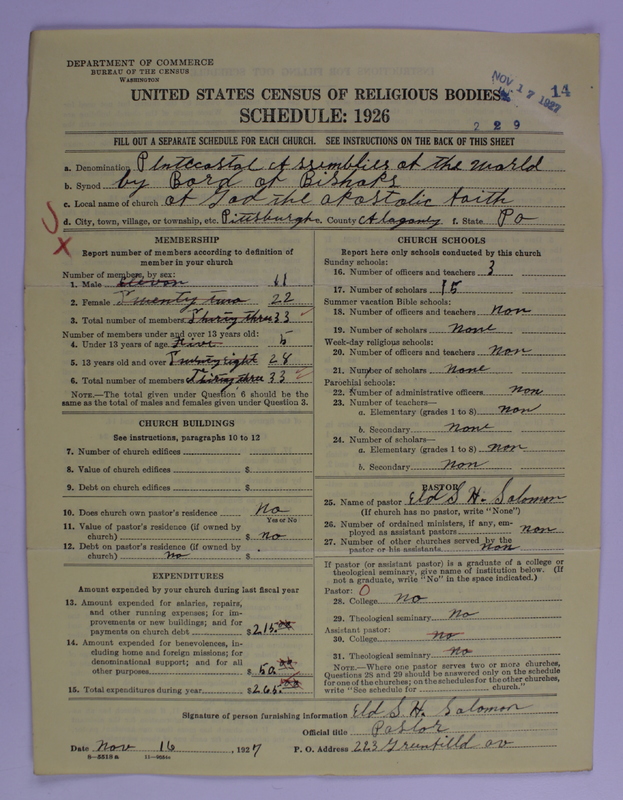 DEPARTMENT OF COMMERCE
BUREAU OF THE CENSUS
WASHINGTON
NOV 17 1927
14
UNITED STATES CENSUS OF RELIGIOUS BODIES
SCHEDULE: 1926
2 2 9
FILL OUT A SEPARATE SCHEDULE FOR EACH CHURCH. SEE INSTRUCTIONS ON THE BACK OF THIS SHEET
a. Denomination Plntecostal Assemblies of the World
b. Synod by Bord of Bishops
c. Local name of church of God the apostolic faith
d. City, town, village, or township, etc. Pittsburgh e. County f. State Pa
MEMBERSHIP
Report number of members according to definition of
member in your church
Number of members, by sex:
1. Male Eleven 11
2. Female Twenty two 22
3. Total number of members Thirty three 33
Number of members under and over 13 years old:
4. Under 13 years of age Five 5
5. 13 years old and over Twenty eight 28
6. Total number of members Thirty three 33
NOTE.—The total given under Question 6 should be the
same as the total of males and females given under Question 3.
CHURCH BUILDINGS
See instructions, paragraphs 10 to 12
7. Number of church edifices
8. Value of church edifices $
9. Debt on church edifices $
10. Does church own pastor's residence No
Yes or No
11. Value of pastor's residence (if owned by
church) $ no
12. Debt on pastor's residence (if owned by
church) no $
EXPENDITURES
Amount expended by your church during last fiscal year
13. Amount expended for salaries, repairs,
and other running expenses; for im-
provements or new buildings; and for
payments on church debt $ 215.
14. Amount expended for benevolences, in-
cluding home and foreign missions; for
denominational support; and for all
other purposes $ 50
15. Total expenditures during year $ 265.
CHURCH SCHOOLS
Report here only schools conducted by this church
Sunday schools:
16. Number of officers and teachers 3
17. Number of scholars 15
Summer vacation Bible schools:
18. Number of officers and teachers non
19. Number of scholars None
Week-day religious schools:
20. Number of officers and teachers non
21. Number of scholars none
Parochial schools:
22. Number of administrative officers non
23. Number of teachers—
a. Elementary (grades 1 to 8) non
b. Secondary none
24. Number of scholars—
a. Elementary (grades 1 to 8) non
b. Secondary non
PASTOR
25. Name of pastor Eld S. H. Salomon
(If church has no pastor, write "None")
26. Number of ordained ministers, if any, em-
ployed as assistant pastors non
27. Number of other churches served by the
pastor or his assistants non
If pastor (or assistant pastor) is a graduate of a college or
theological seminary, give name of institution below. (If
not a graduate, write "No" in the space indicated.)
Pastor: 0
28. College No
29. Theological seminary No
Assistant pastor:
30. College no
31. Theological seminary No
NOTE.—Where one pastor serves two or more churches,
Questions 28 and 29 should be answered only on the schedule
for one of the churches; on the schedules for the other churches,
write "See schedule for church."
Signature of person furnishing information Eld S. H. Salomon
Official title Pastor
Date Nov 16, 1927 P. O. Address 223 av
8—5518a